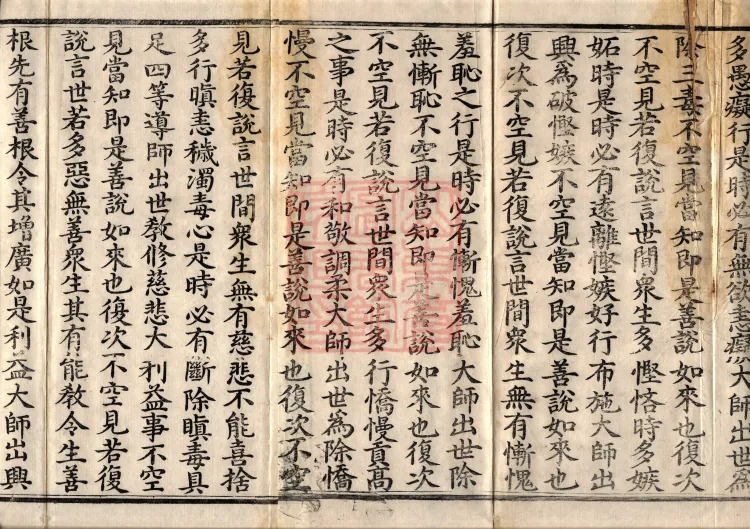 多愚癡行是時必有無欲恚癡大師出世爲
除三毒不空見當知即是善說如來也復次
不空見若復說言世間衆生多慳悋時多嫉
妬時是時必有遠離慳嫉好行布施大師出
興爲破慳嫉不空見當知即是善說如來也
復次不空見若復說言世間衆生無有慚愧
羞恥之行是時必有慚愧羞恥大師出世除
無慚恥不空見當知即是善說如來也復次
不空見若復說言世間衆生多行憍慢貢高
之事是時必有和敬調柔大師出世爲除憍
慢不空見當知即是善說如來也復次不空
見若復說言世間衆生無有慈悲不能喜捨
多行瞋恚穢濁毒心是時必有斷除瞋毒具
足四等導師出世教修慈悲大利益事不空
見當知即是善說如來也復次不空見若復
說言世若多惡無善衆生其有能教令生善
根先有善根令其增廣如是利益大師出興